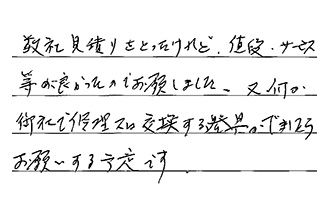 数社見積りをとったけれど、値段・サービス
等が良かったのでお願しました。又何か
御社で修理又は交換する器具がでましたら
お願いする予定です